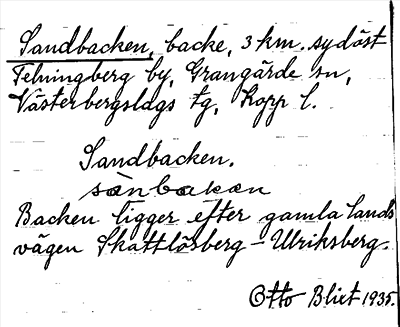 Sandbacken, backe, 3 km. sydöst
Felningberg by, Grangärde sn,
Västerbergslags tg, Kopp l.
Sandbacken.
sànbakan
Backen ligger efter gamla lands
vägen Skattlösberg - Ulriksberg.
Otto Blixt 1935.